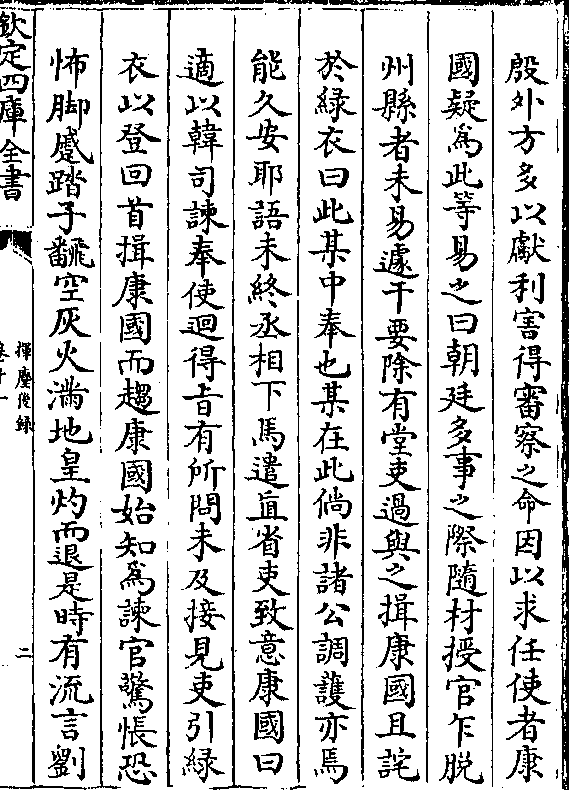 殷外方多以獻利害得審察之命因以求任使者康
國疑為此等易之曰朝廷多事之際隨材授官乍脫
州縣者未易遽干要除有堂吏過與之揖康國且詫
於綠衣曰此某中奉也某在此倘非諸公調護亦焉
能久安耶語未終丞相下馬遣直省吏致意康國曰
適以韓司諫奉使迴得旨有所問未及接見吏引綠
衣以登回首揖康國而趨康國始知為諫官驚悵恐
怖脚蹙踏子翻空灰火滿地皇灼而退是時有流言劉
欽定四庫全書
揮麈後錄
卷十一
二